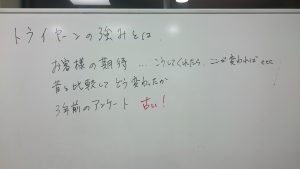 トライセンの強みとは
お客様の期待 … こうしてくれたら、ここが変われば etc
昔と比較してどう変わったか
3年前のアンケート 古い!